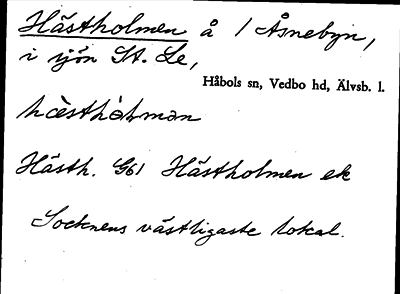 Hästholmen å 1 Åsnebyn,
i sjön St. Le,
Håbols sn, Vedbo hd, Älvsb. l.
hæ̀sthɷ̀lmən
Hästh. G61 Hästholmen ek
Socknens västligaste lokal.